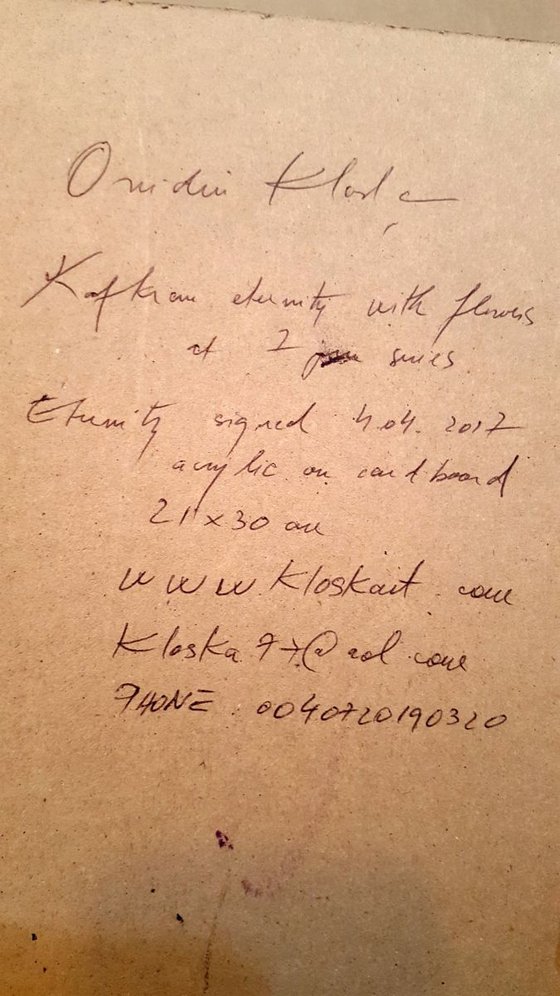 Ovidiu Kloska
Kafkian eternity with flowers
at 7 series
Eternity signed 4.04.2017
acrylic on cardboard
21x30 cm
www.Kloskart.com
Kloska77@aol.com
PHONE. 0040720190320